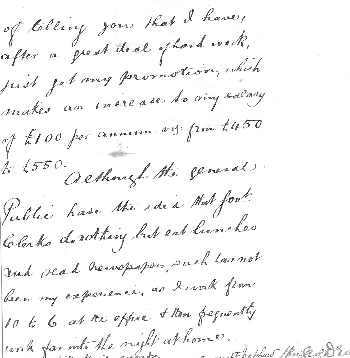 of telling you that I have,
after a great deal of hard work,
just got my promotion, which
makes an increase to my salary
of £100 per annum viz from £450
to £550.
Although the general
Public have the idea that Govt.
Clerks do nothing but eat lunches
and read newspapers, such has not
been my experience, as I work from
10 to 6 at the office & then frequently
work far into the night at home.